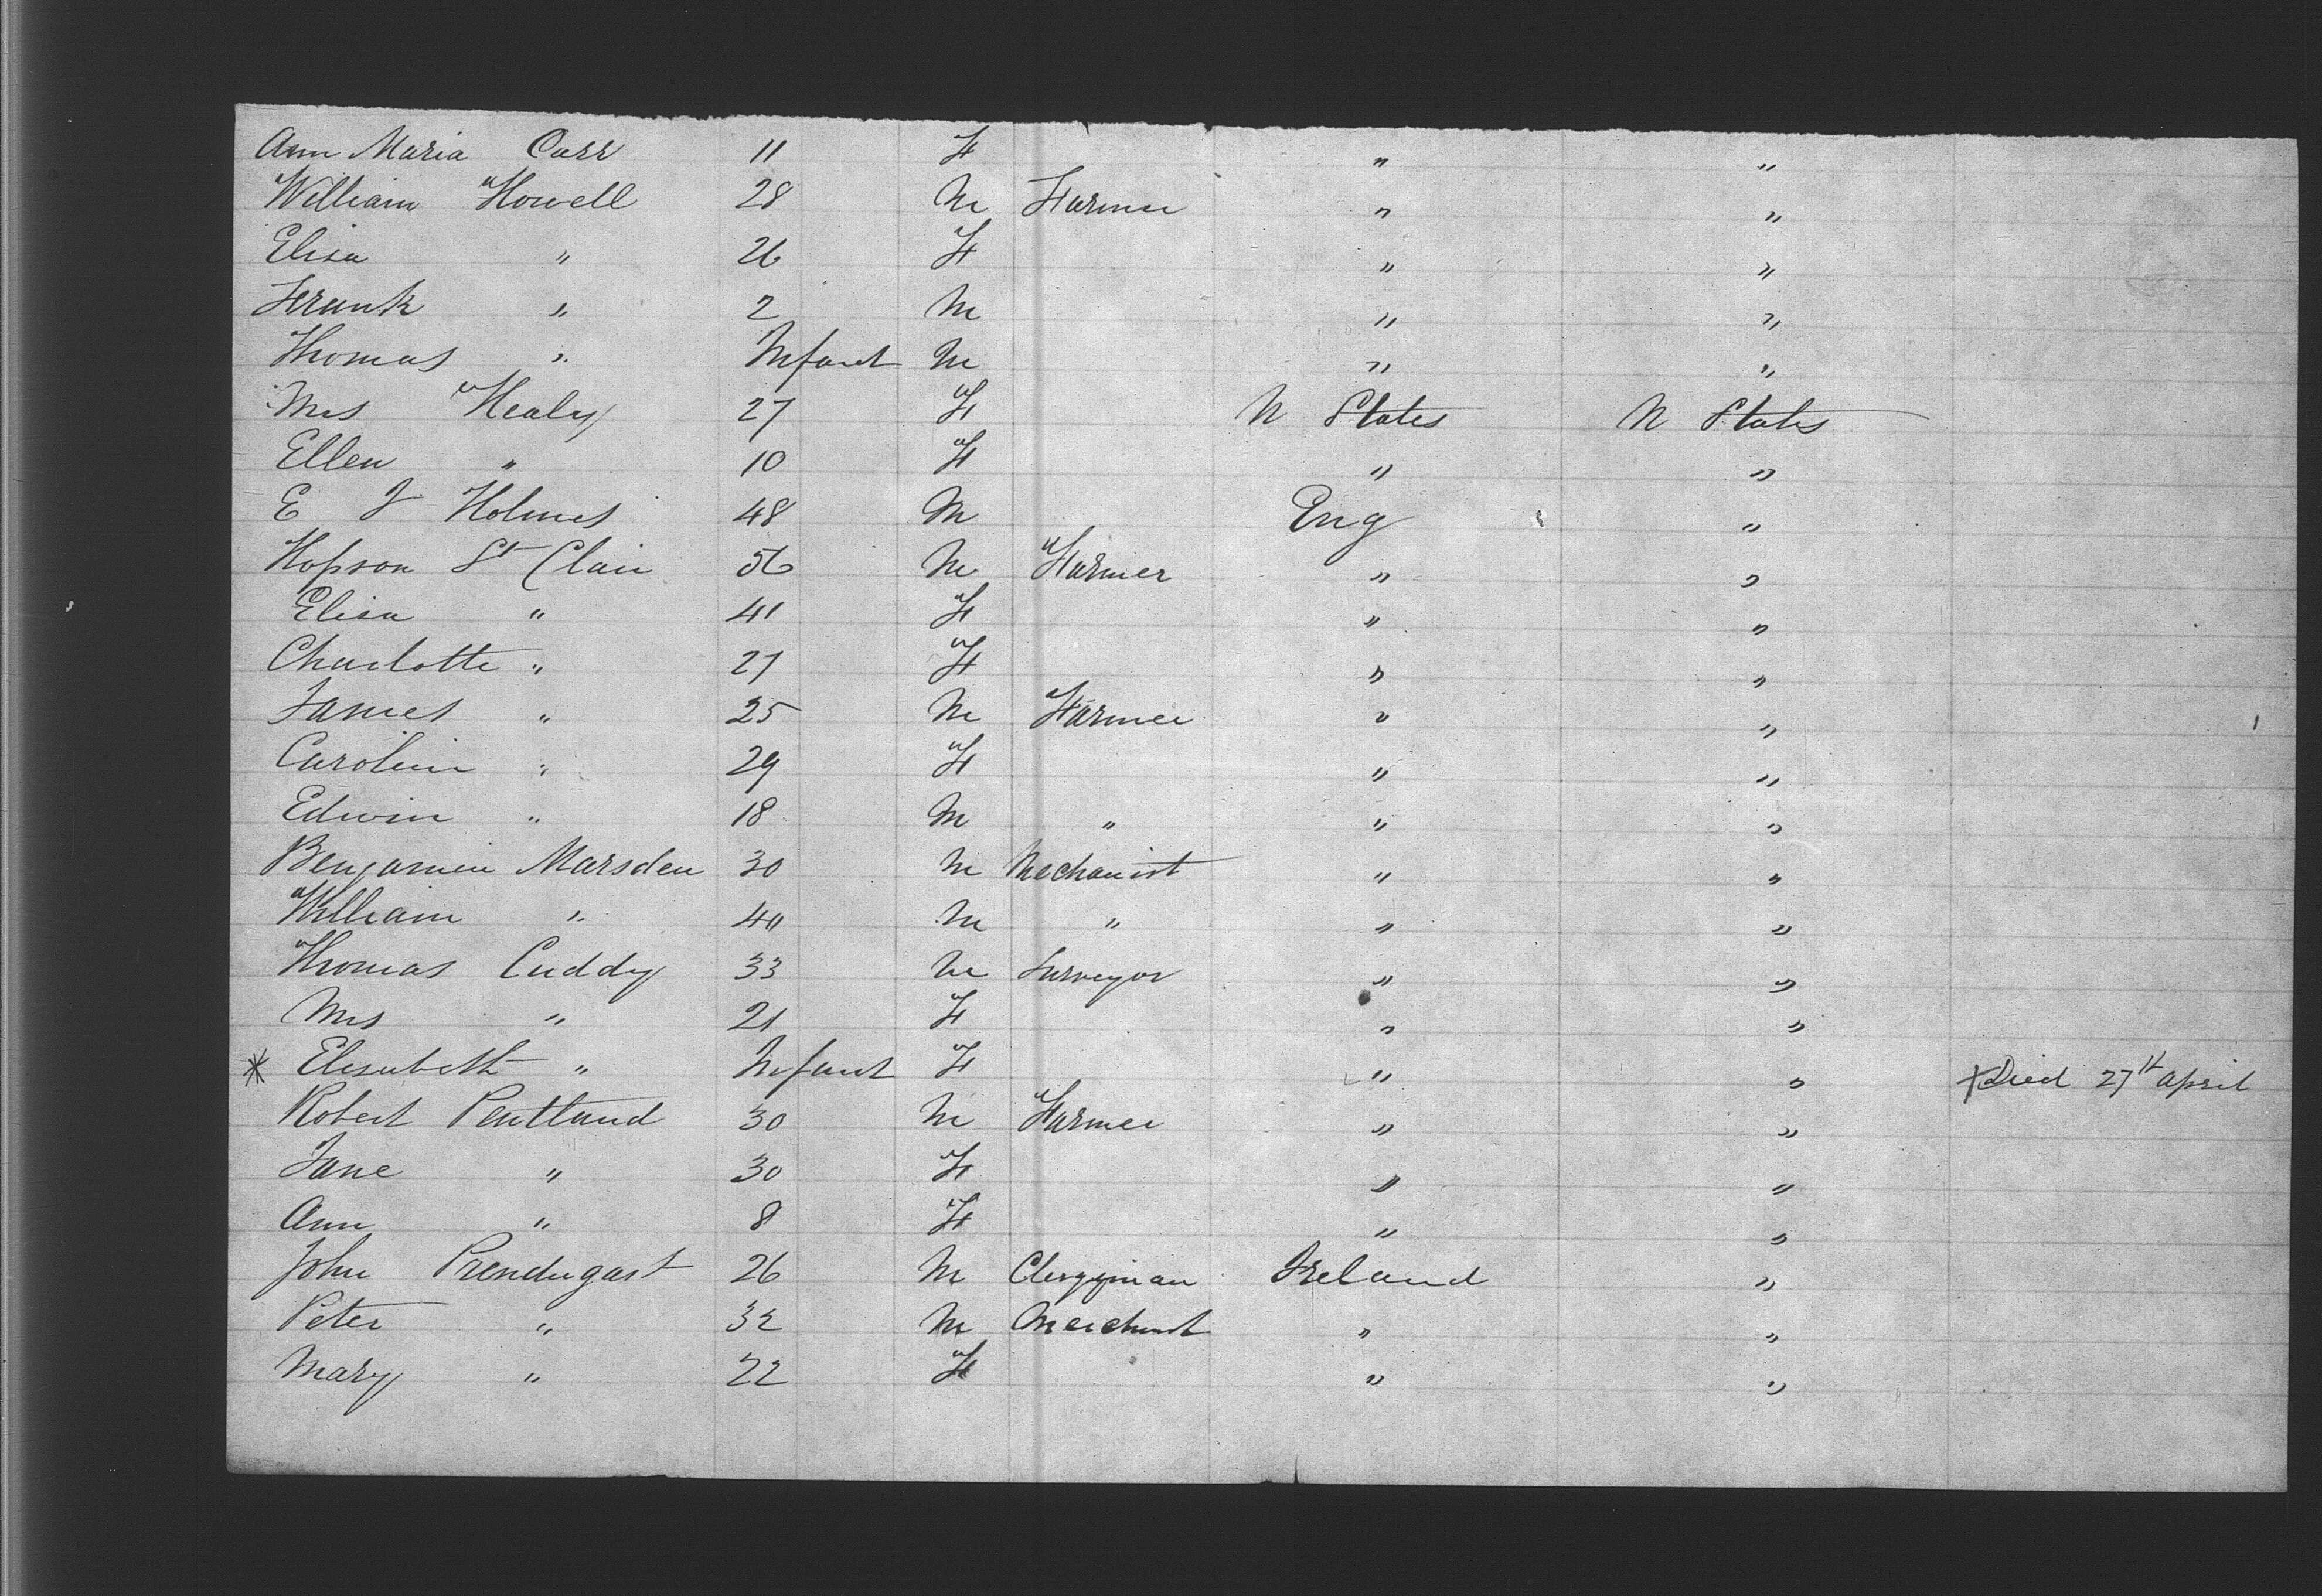 Ann Maria Carr 11 F " "
William Howell 28 M Farmer " "
Elisa " 26 F " "
Frank " 2 M " "
Thomas " Infant M " "
Mrs Healy 27 F U States U States
Ellen " 10 F " "
E J Holmes 48 M Eng "
Hopson St Clair 56 M Farmer " "
Elisa " 41 F " "
Charlotte " 27 F " "
James " 25 M Farmer " "
Carolin " 29 F " "
Edwin " 18 M " " "
Benjamin Marsden 30 M Mechanist " "
William " 40 M " " "
Thomas Cuddy 33 M Surveyor " "
Mrs " 21 F " "
* Elesabeth " Infant F " " * Died 27th April
Robert Pentland 30 M Farmer " "
Jane " 30 F " "
Ann " 8 F " "
John Prendugast 26 M Clergyman Ireland "
Peter " 32 M Merchant " "
Mary " 22 F " "